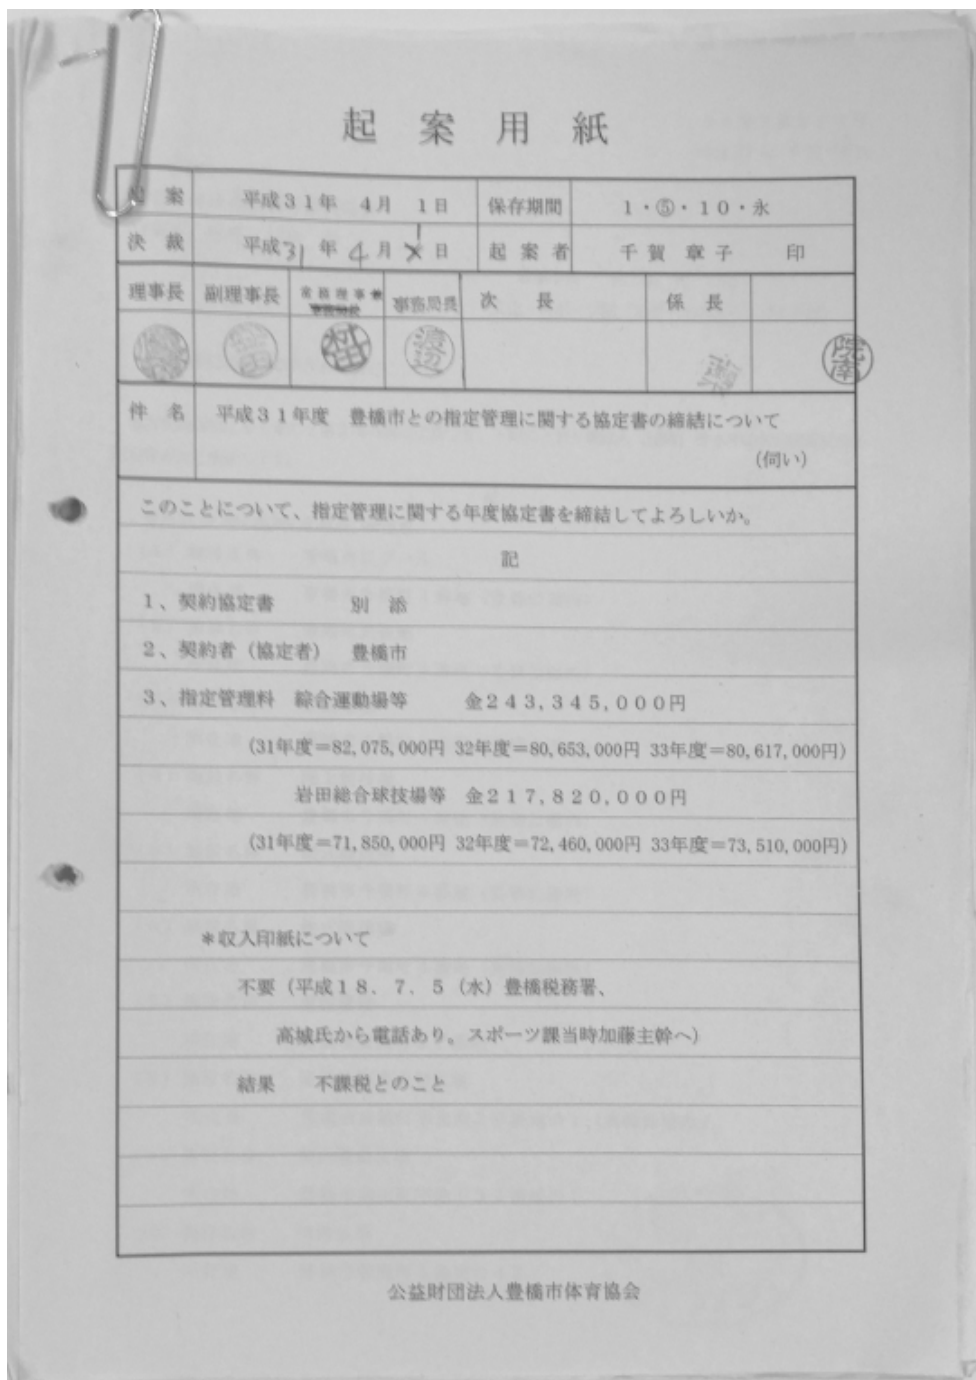 起案用紙
起案 平成31年 4月 1日 保存期間 1・⑤・10・永
決裁 平成31年4月1日 起案者 千賀 章子 印
理事長 副理事長 常務理事 事務局長 次長 係長
渡辺 院南
件名 平成31年度 豊橋市との指定管理に関する協定書の締結について
(伺い)
このことについて、指定管理に関する年度協定書を締結してよろしいか。
記
1、契約協定書 別添
2、契約者(協定者) 豊橋市
3、指定管理料 綜合運動場等 金243,345,000円
(31年度=82,075,000円 32年度=80,653,000円 33年度=80,617,000円)
岩田総合球技場等 金217,820,000円
(31年度=71,850,000円 32年度=72,460,000円 33年度=73,510,000円)
*収入印紙について
不要(平成18.7.5(水)豊橋税務署、
高城氏から電話あり。スポーツ課当時加藤主幹へ)
結果 不課税とのこと
公益財団法人豊橋市体育協会